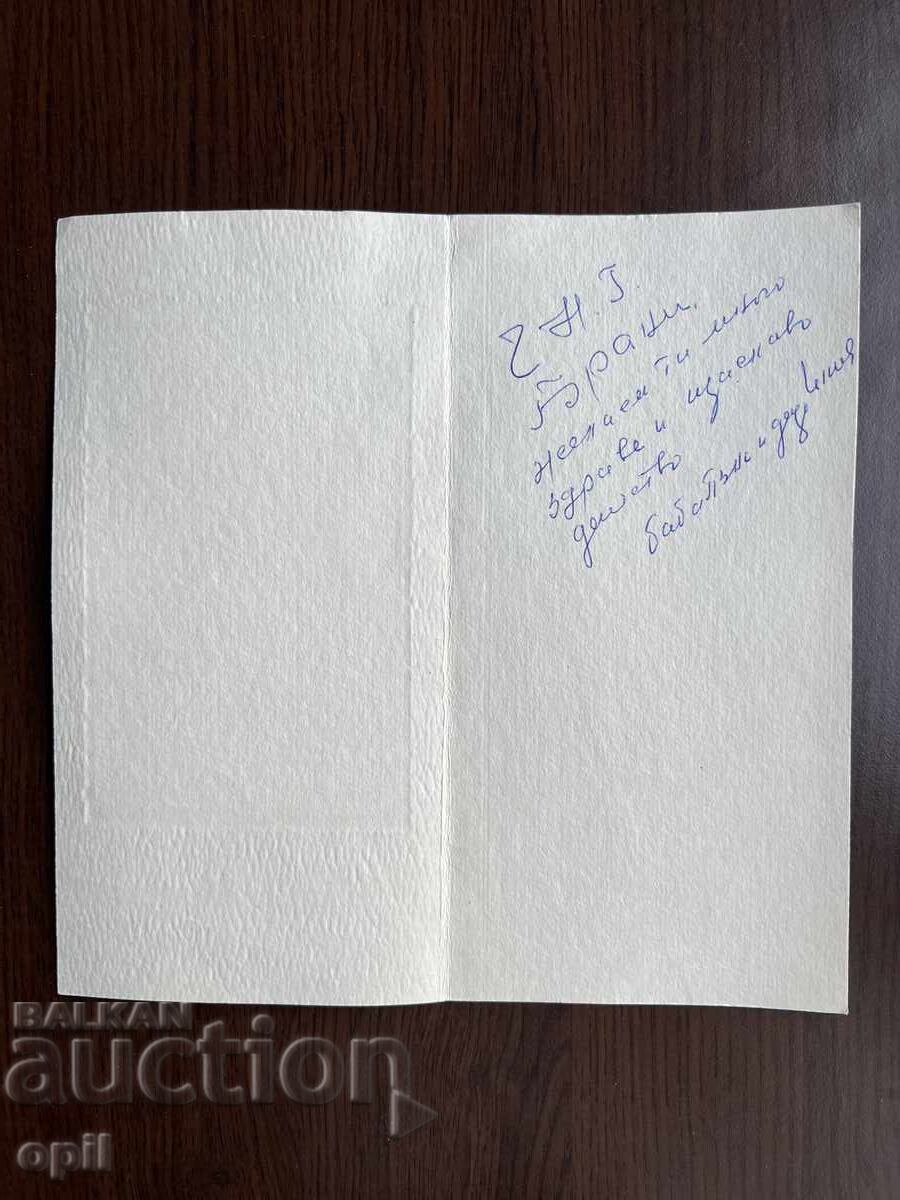 Ч Н. Г.
Брани,
желаем ти много
здраве и щаскаво
детство
баба и дядо
BALKAN
auction
opil